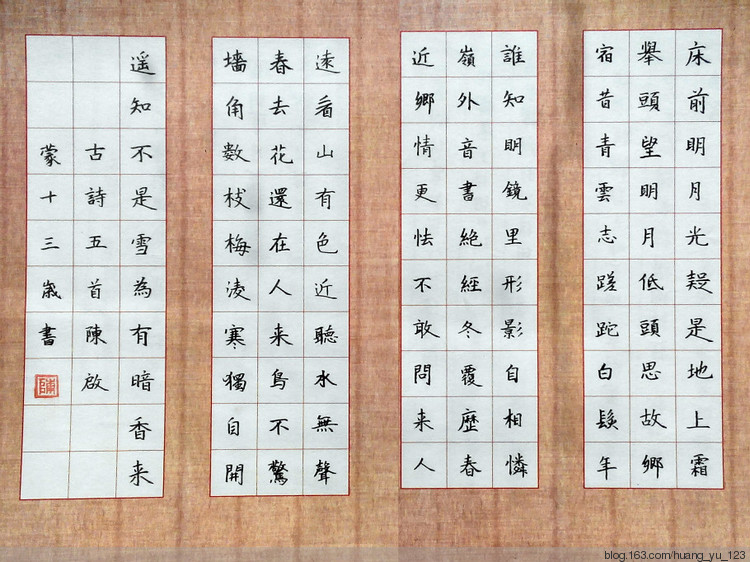 床前明月光疑是地上霜
舉頭望明月低頭思故鄉
宿昔青雲志蹉跎白髮年
誰知明鏡里形影自相憐
嶺外音書絕經冬覆歷春
近鄉情更怯不敢問来人
遠看山有色近聽水無聲
春去花還在人来鳥不驚
墻角數枝梅凌寒獨自開
遥知不是雪為有暗香来
古詩五首陳啟
蒙十三歲書
blog.163.com/huang_yu_123